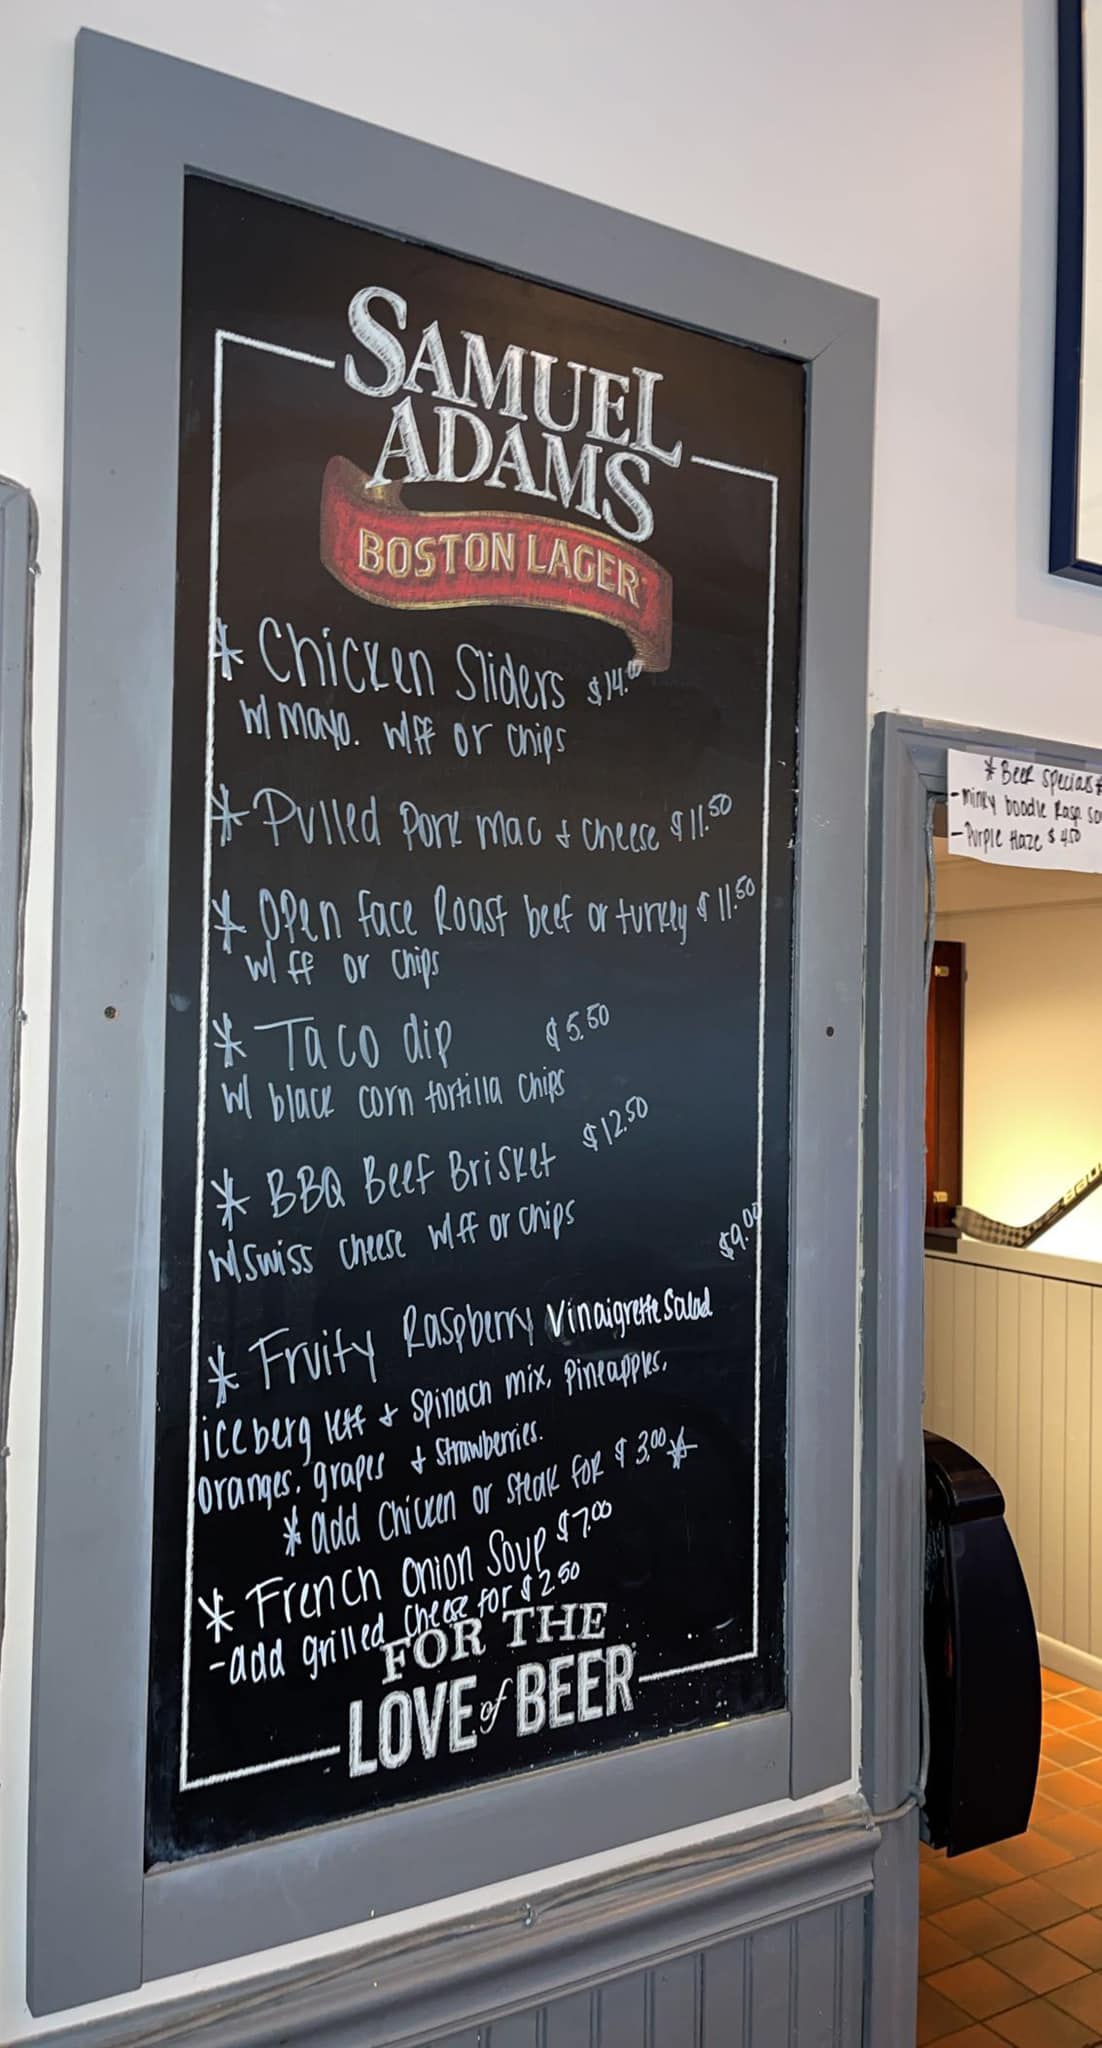 SAMUEL
ADAMS
BOSTON LAGER
* Chicken Sliders $14.00
w/ mayo. w/ff or chips
* Pulled Pork mac & cheese $11.50
* Open face Roast beef or turkey $11.50
w/ ff or chips
* Taco dip $5.50
w/ black corn tortilla chips
* BBQ Beef Brisket $12.50
w/swiss cheese w/ff or chips
$9.00
* Fruity Raspberry Vinaigrette Salad
iceberg lett & spinach mix, pineapples,
oranges, grapes & strawberries.
* add chicken or steak for $3.00 *
* French Onion Soup $7.00
- add grilled cheese for $2.50
FOR THE
LOVE of BEER
* Beer specials *
- minky boodle Rasp so
- Purple Haze $4.50